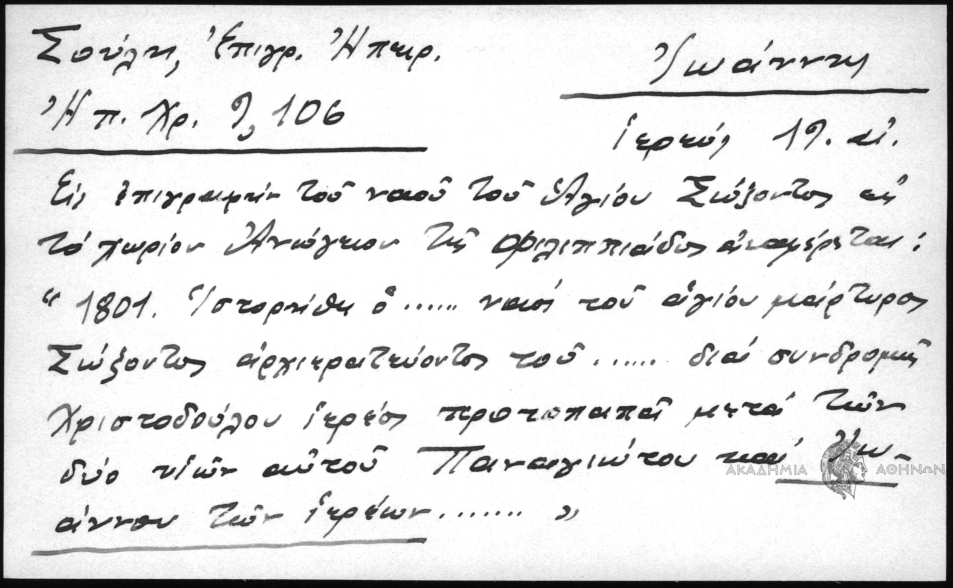 Σούλη, Ἐπιγρ. Ἠπειρ.
Ἠπ. Χρ. 9, 106
Ἰωάννης
ἱερεύς 19. αἰ.
Εἰς ἐπιγραφὴν τοῦ ναοῦ τοῦ Ἁγίου Σώζοντος εἰς
τὸ χωρίον Ἀνώγειον τῆς Φιλιππιάδος ἀναφέρεται:
"1801. Ἱστορήθη ὁ ...... ναὸς τοῦ ἁγίου μάρτυρος
Σώζοντος ἀρχιερατεύοντος τοῦ ...... διὰ συνδρομῆς
Χριστοδούλου ἱερέος πρωτοπαπᾶ μετὰ τῶν
δύο υἱῶν αὐτοῦ Παναγιώτου καὶ Ἰω-
άννου τῶν ἱερέων ....... "
ΑΚΑΔΗΜΙΑ ΑΘΗΝΩΝ